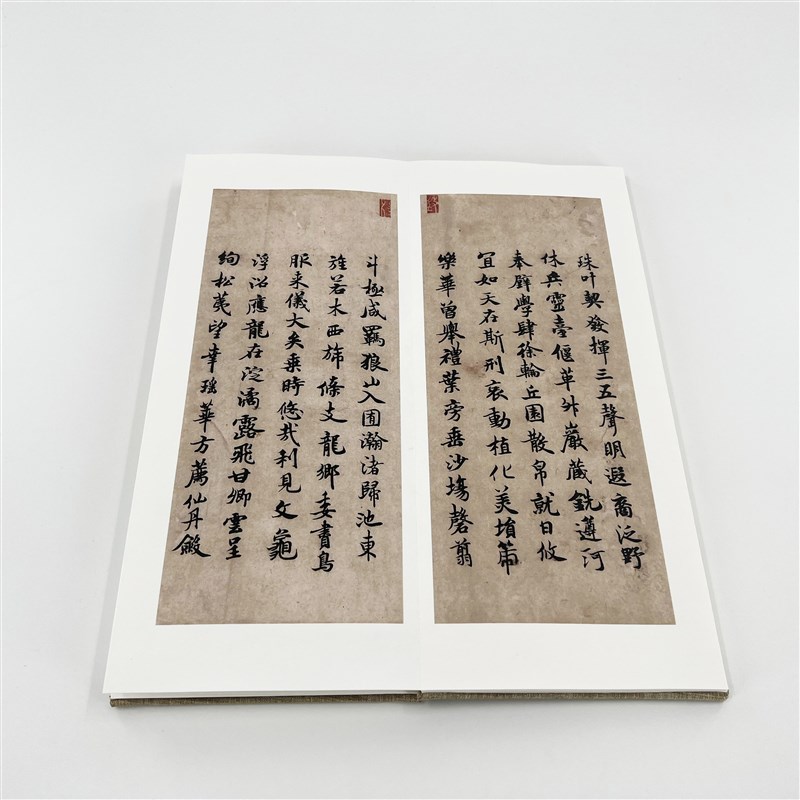 珠叶契發揮三五聲明遐裔泛野
休兵靈臺偃革外巖蔵銑遵河
奉璧學肆徐輪丘園散帛就日攸
宜如天在斯刑哀動植化美堉箾
樂華曾舉禮葉旁垂沙塲罄翦
斗極咸羈狼山入囿瀚渚歸池東
旌若木西旆條支龍鄉委書鳥
服来儀大矣乘時悠哉利見文龜
浮沼應龍在淀潏露飛甘卿雲呈
絢松荑望幸瑤華方薦仙丹